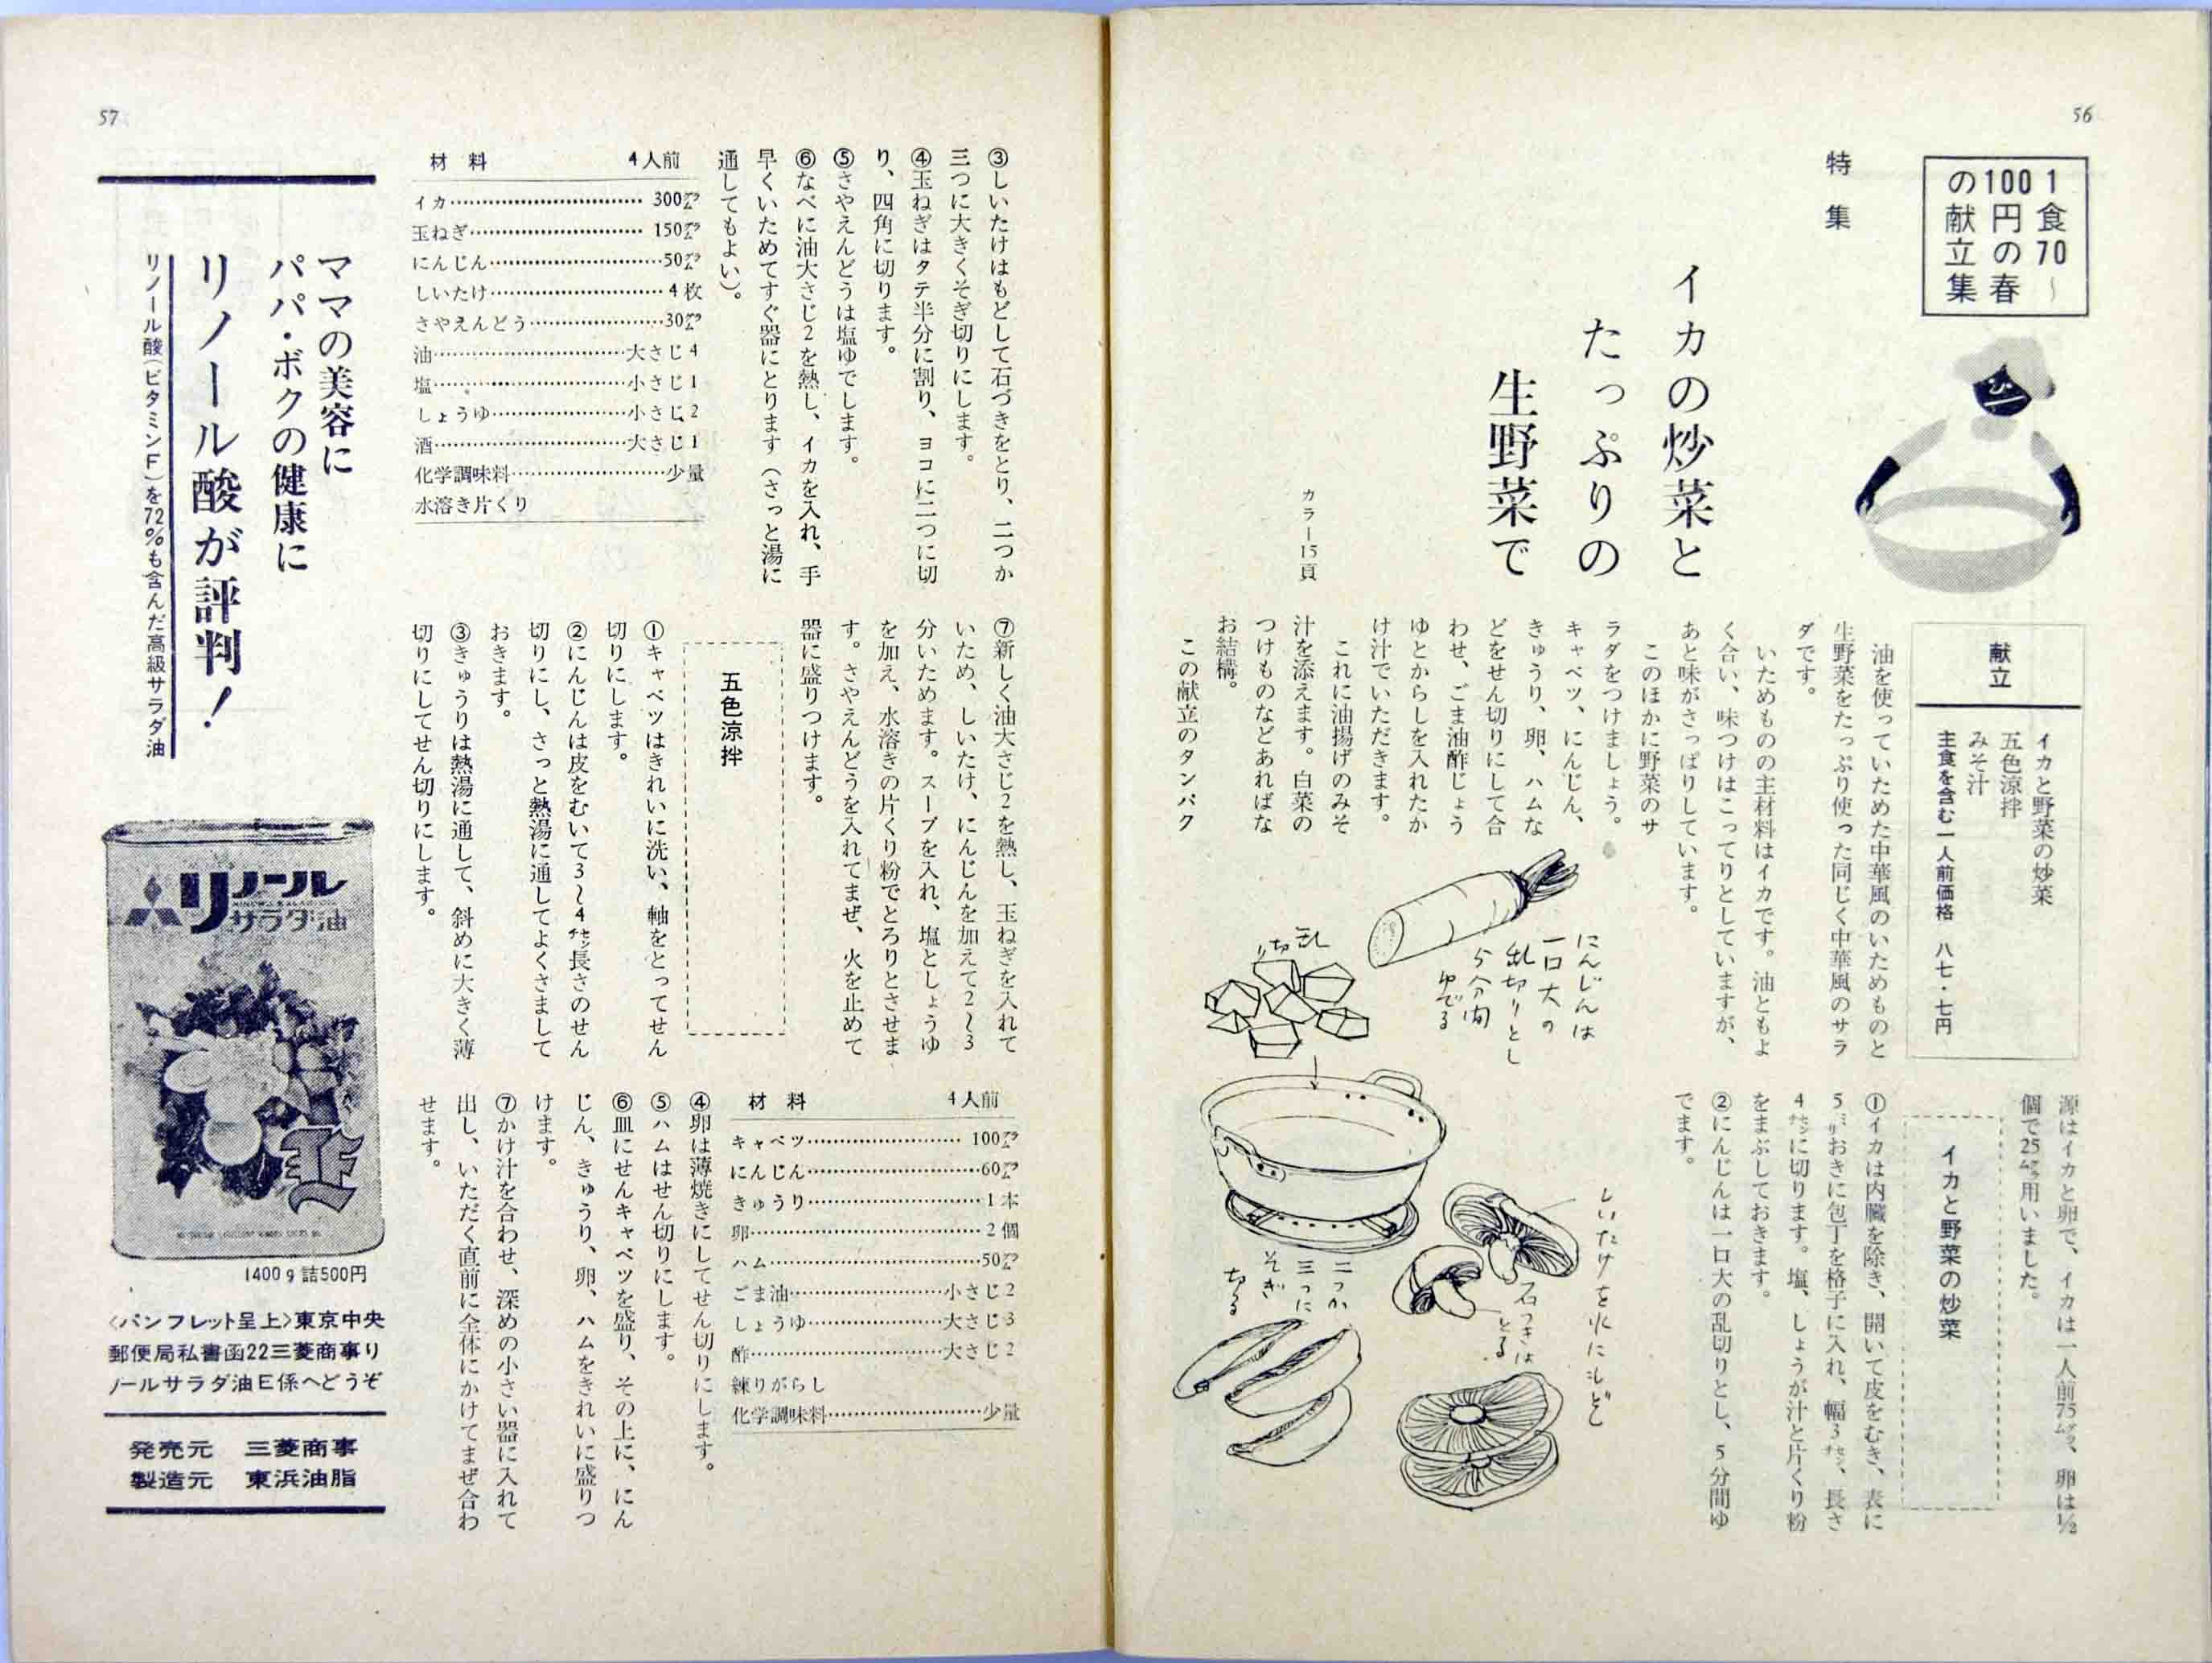 56
1食70〜
100円の春
の献立集
特集
イカの炒菜と
たっぷりの
生野菜で
カラー15頁
献立
イカと野菜の炒菜
五色涼拌
みそ汁
主食を含む一人前価格 八七・七円
油を使っていためた中華風のいためものと
生野菜をたっぷり使った同じく中華風のサラ
ダです。
いためものの主材料はイカです。油ともよ
く合い、味つけはこってりとしていますが、
あと味がさっぱりしています。
このほかに野菜のサ
ラダをつけましょう。
キャベツ、にんじん、
きゅうり、卵、ハムな
どをせん切りにして合
わせ、ごま油酢じょう
ゆとからしを入れたか
け汁でいただきます。
これに油揚げのみそ
汁を添えます。白菜の
つけものなどあればな
お結構。
この献立のタンパク
源はイカと卵で、イカは一人前75㌘、卵は½
個で25㌘用いました。
イカと野菜の炒菜
①イカは内臓を除き、開いて皮をむき、表に
5㍉おきに包丁を格子に入れ、幅3㌢、長さ
4㌢に切ります。塩、しょうが汁と片くり粉
をまぶしておきます。
②にんじんは一口大の乱切りとし、5分間ゆ
でます。
にんじんは
一口大の
乱切りとし
5分間
ゆでる
乱
切り
しいたけを水にもどし
石づきは
とる
二つか
三つに
そぎ
切る
57
③しいたけはもどして石づきをとり、二つか
三つに大きくそぎ切りにします。
④玉ねぎはタテ半分に割り、ヨコに二つに切
り、四角に切ります。
⑤さやえんどうは塩ゆでします。
⑥なべに油大さじ2を熱し、イカを入れ、手
早くいためてすぐ器にとります（さっと湯に
通してもよい）。
材料 4人前
イカ…………300㌘
玉ねぎ…………150㌘
にんじん…………50㌘
しいたけ…………4枚
さやえんどう…………30㌘
油…………大さじ4
塩…………小さじ1
しょうゆ…………小さじ2
酒…………大さじ1
化学調味料…………少量
水溶き片くり
⑦新しく油大さじ2を熱し、玉ねぎを入れて
いため、しいたけ、にんじんを加えて2〜3
分いためます。スープを入れ、塩としょうゆ
を加え、水溶きの片くり粉でとろりとさせま
す。さやえんどうを入れてまぜ、火を止めて
器に盛りつけます。
五色涼拌
①キャベツはきれいに洗い、軸をとってせん
切りにします。
②にんじんは皮をむいて3〜4㌢長さのせん
切りにし、さっと熱湯に通してよくさまして
おきます。
③きゅうりは熱湯に通して、斜めに大きく薄
切りにしてせん切りにします。
材料 4人前
キャベツ…………100㌘
にんじん…………60㌘
きゅうり…………1本
卵…………2個
ハム…………50㌘
ごま油…………小さじ2
しょうゆ…………大さじ3
酢…………大さじ2
練りがらし
化学調味料…………少量
④卵は薄焼きにしてせん切りにします。
⑤ハムはせん切りにします。
⑥皿にせんキャベツを盛り、その上に、にん
じん、きゅうり、卵、ハムをきれいに盛りつ
けます。
⑦かけ汁を合わせ、深めの小さい器に入れて
出し、いただく直前に全体にかけてまぜ合わ
せます。
ママの美容に
パパ・ボクの健康に
リノール酸が評判！
リノール酸（ビタミンF）を72%も含んだ高級サラダ油
リノール
サラダ油
1400g詰500円
〈パンフレット呈上〉東京中央
郵便局私書函22三菱商事リ
ノールサラダ油E係へどうぞ
発売元 三菱商事
製造元 東浜油脂